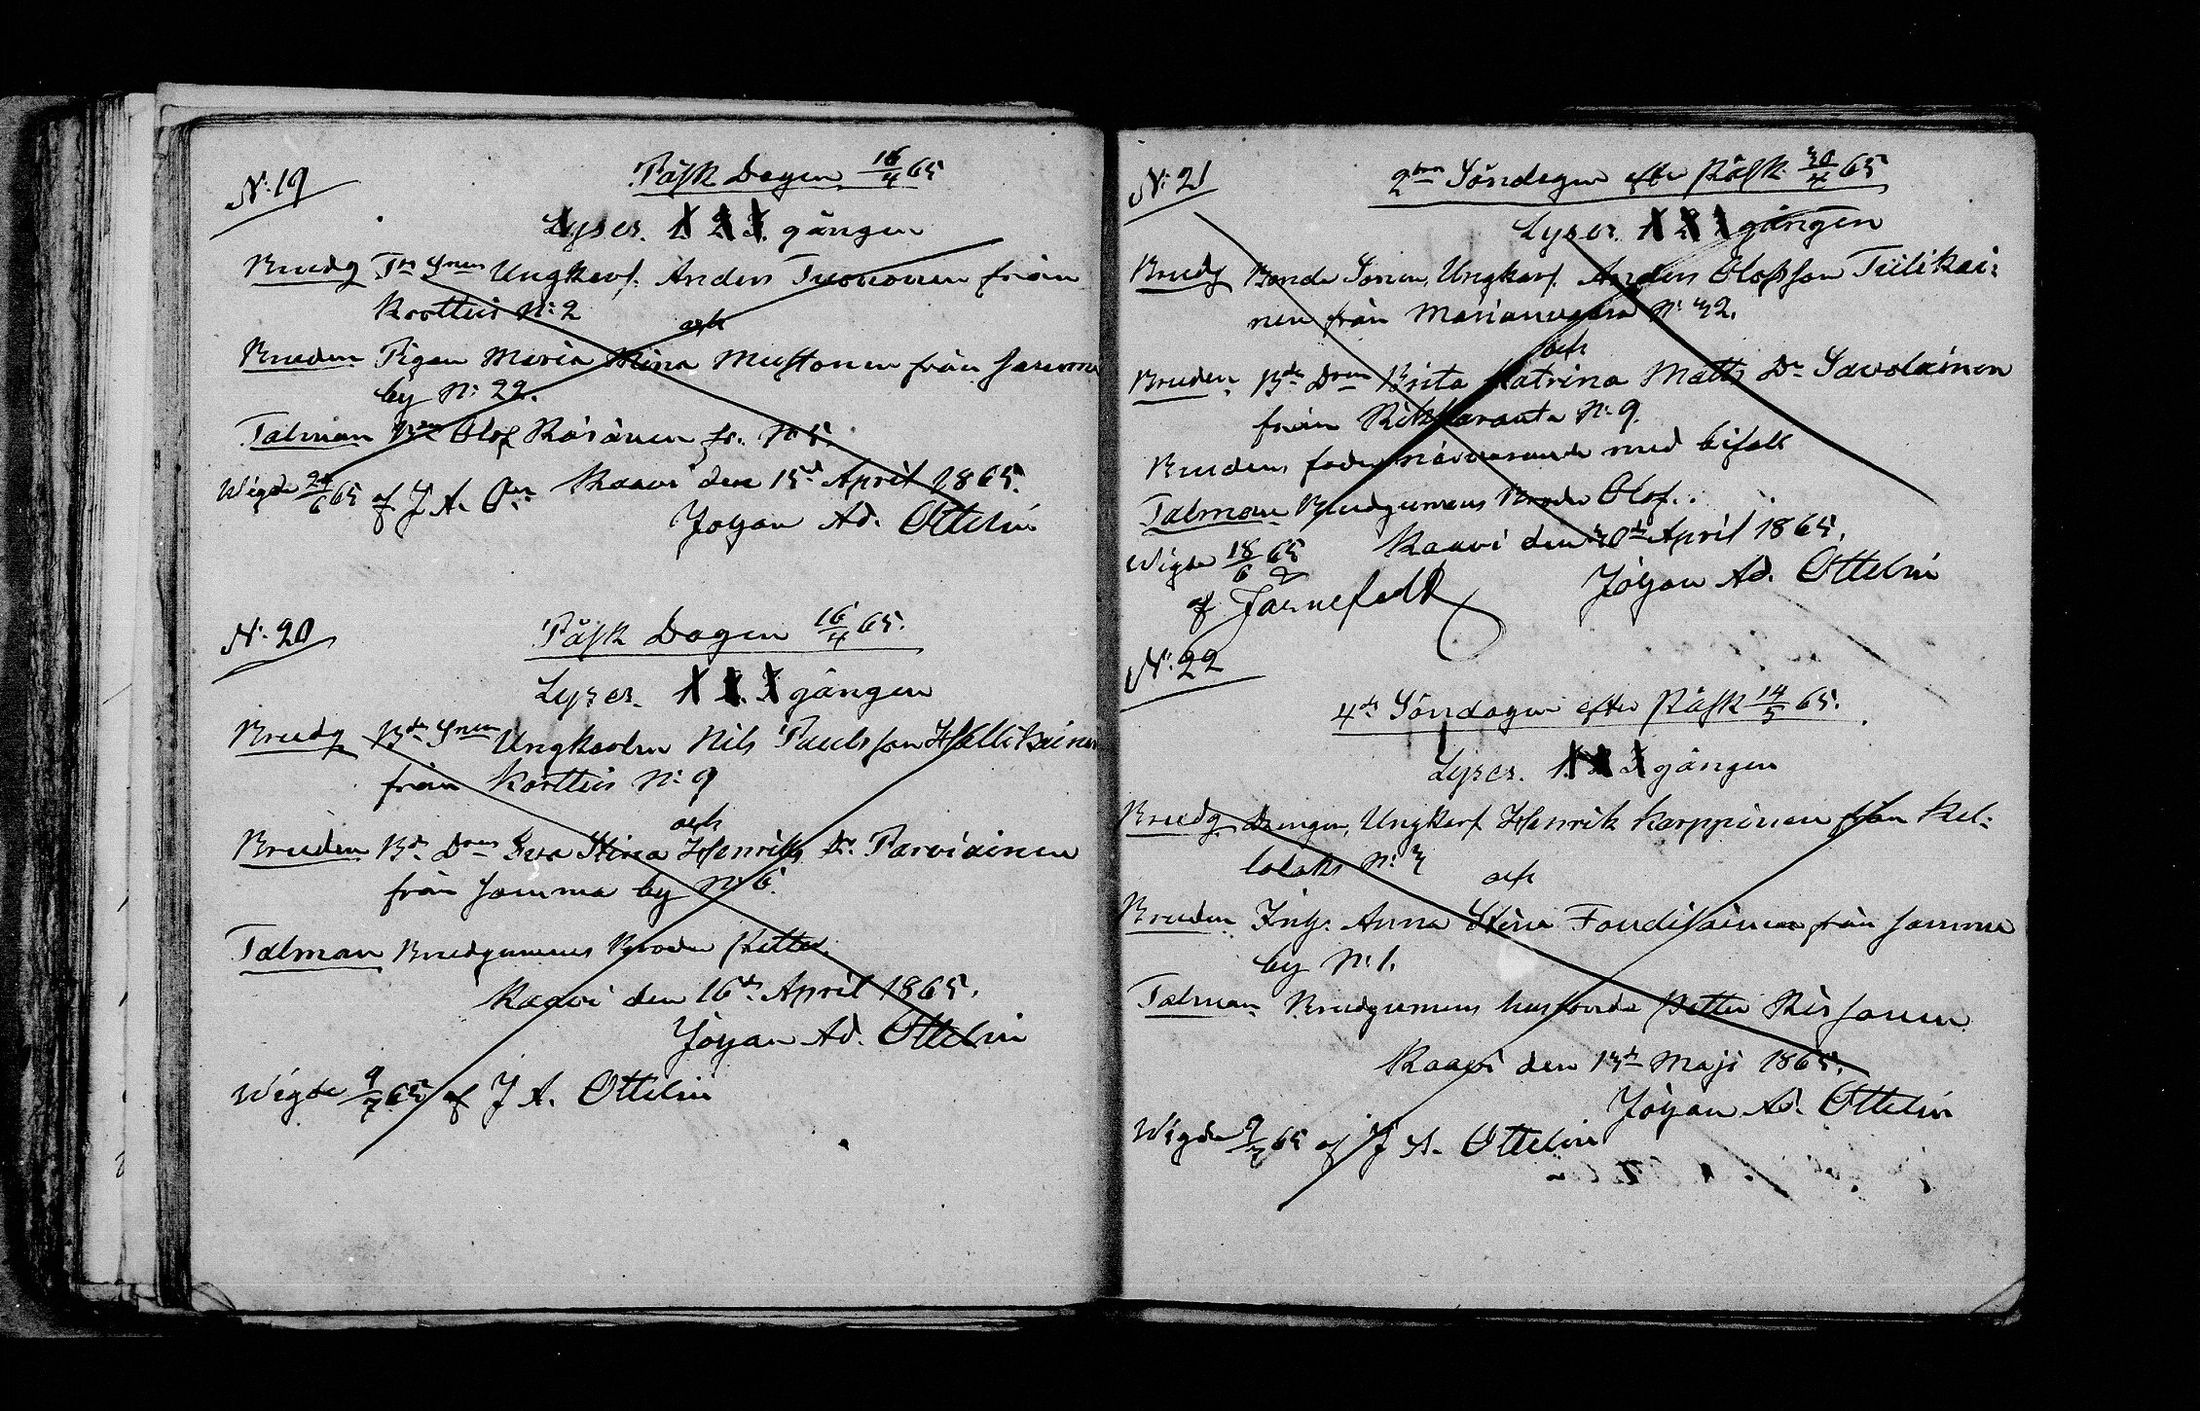 N: 19
Påsk Dagen 16/4 65
Lyses. 1. 2. 3. gången
Brudg Ts Snen Ungkarl. Anders Tuononen från
Kortteis N: 2
och
Bruden Pigan Maria Stina Mustonen från
by N: 22.
Talman Olof Räsänen fr. N: 5.
Wigde 65 af J A. Oin
Kaavi den 15d April 1865.
Johan Ad. Ottelin
N: 20
Påsk Dagen 16/4 65.
Lyses. 1. 2. 3. gången
Brudg Bde Snen Ungkarlen Nils Paulsson
från Kortteis N: 9
och
Bruden Bde Dren Eva Stina Henriks Dr Parviainen
från by N: 6.
Talman Brudgumens Broder Petter.
Kaavi den 16de April 1865.
Johan Ad. Ottelin
Wigde 9/7 65 af J A. Ottelin
N: 21
2dra Söndagen efter Påsk 30/4 65
Lyses. 1 2 3 gången
Brudg Bonde Sonen, Ungkarl. Anders Olofsson Tiilikai:
nen från Marianvaara N: 32.
och
Bruden Bde Dren Brita Katrina Matts Dr Savolainen
från N: 9.
Brudens fader närvarande med bifall
Talman Brudgumens Broder Olof.
Kaavi den 30de April 1865.
Johan Ad. Ottelin
Wigde 18/6 65
af Jarnefelt
N: 22
4de Söndagen efter Påsk 14/5 65.
Lyses. 1. 2. 3 gången
Brudg Drengen, Ungkarl Henrik Karppinen från Kel:
laks N: 3
och
Bruden Inhs. Anna Stina från
by N: 1.
Talman Brudgumens husbonde Petter
Kaavi den 13de Maji 1865.
Johan Ad. Ottelin
Wigde 9/7 65 af J A. Ottelin